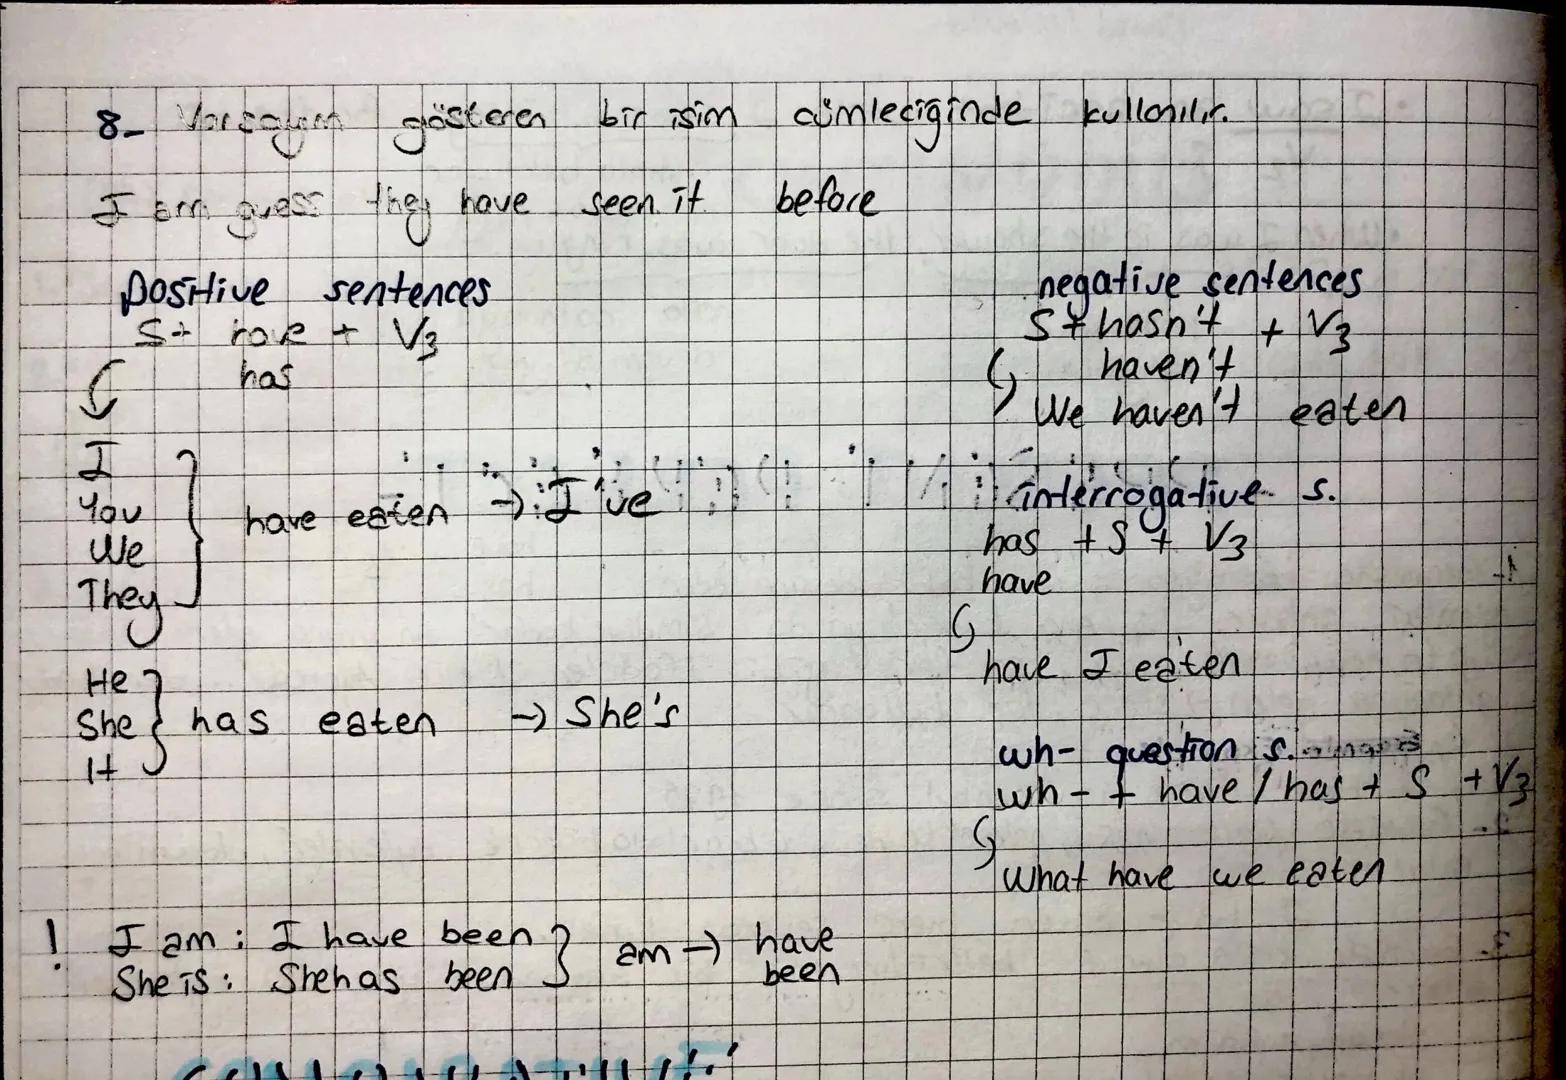 8- Varsayım gösteren bir isim cümleciğinde kullanılır.
I am guess they have seen it before
positive sentences
S+ have + V3
has
I
You
We
They
have eaten → I've
He
She
It
has eaten → She's
negative sentences
S + hasn't + V3
haven't
We haven't eaten
interrogative s.
has + S + V3
have
have I eaten
wh- question s.
wh- + have / has + S + V3
What have we eaten
! I am : I have been
She is : She has been
am → have
been